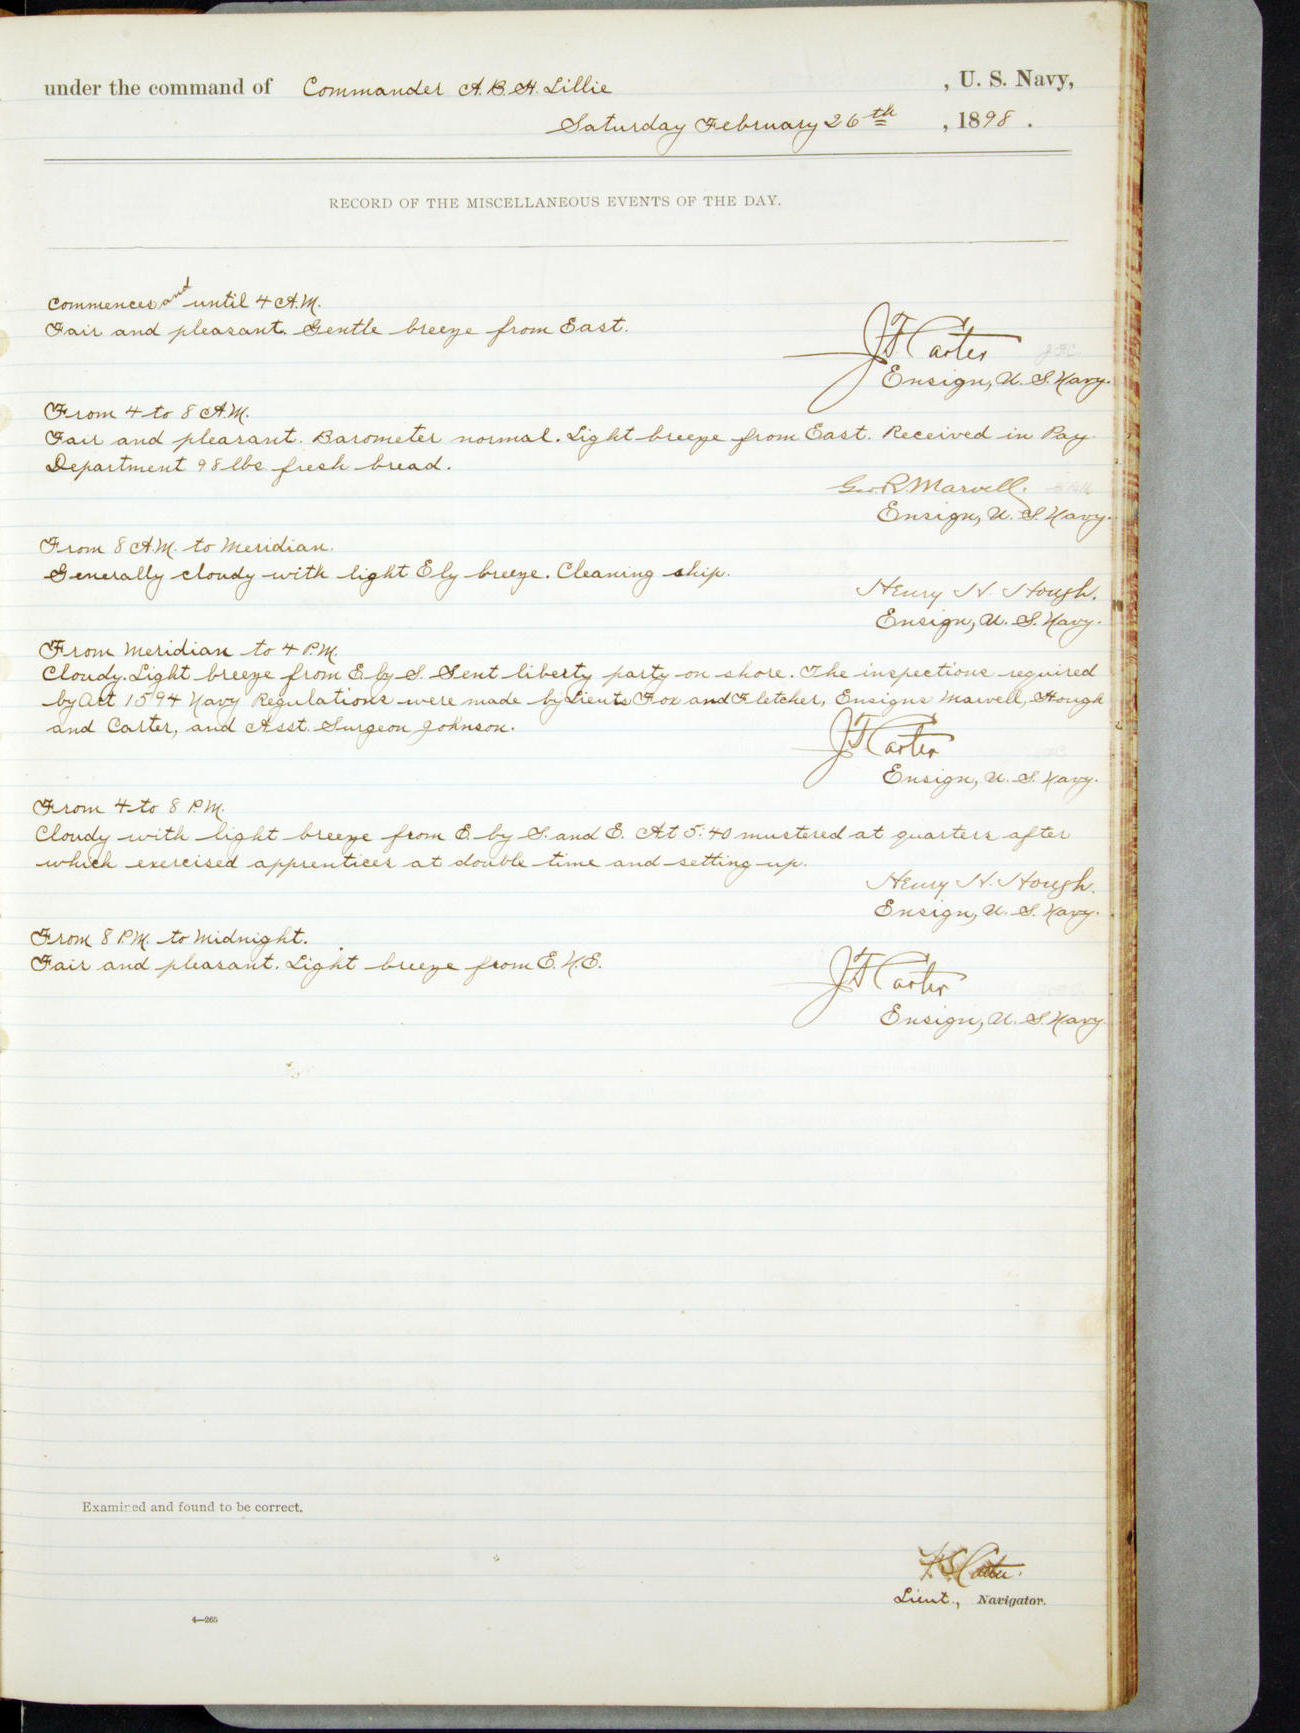 under the command of Commander A. B. H. Lillie , U. S. Navy,
Saturday February 26th , 1898 .
RECORD OF THE MISCELLANEOUS EVENTS OF THE DAY.
Commences and until 4 A.M.
Fair and pleasant. Gentle breeze from East.
J F Carter
Ensign, U. S. Navy.
From 4 to 8 A.M.
Fair and pleasant. Barometer normal. Light breeze from East. Received in Pay
Department 98 lbs fresh bread.
Geo. R. Marvell.
Ensign, U. S. Navy.
From 8 A.M. to Meridian.
Generally cloudy with light Ely breeze. Cleaning ship.
Henry H. Hough.
Ensign, U. S. Navy.
From Meridian to 4 P.M.
Cloudy. Light breeze from E. by S. Sent liberty party on shore. The inspections required
by Art 1594 Navy Regulations were made by Lieuts Fox and Fletcher, Ensigns Marvell, Hough
and Carter, and Asst. Surgeon Johnson.
J F Carter
Ensign, U. S. Navy.
From 4 to 8 P.M.
Cloudy with light breeze from E. by S. and E. At 5:40 mustered at quarters after
which exercised apprentices at double time and setting up.
Henry H. Hough.
Ensign, U. S. Navy.
From 8 P.M. to Midnight.
Fair and pleasant. Light breeze from E.N.E.
J F Carter
Ensign, U. S. Navy
Examined and found to be correct.
Lieut., Navigator.
4—265